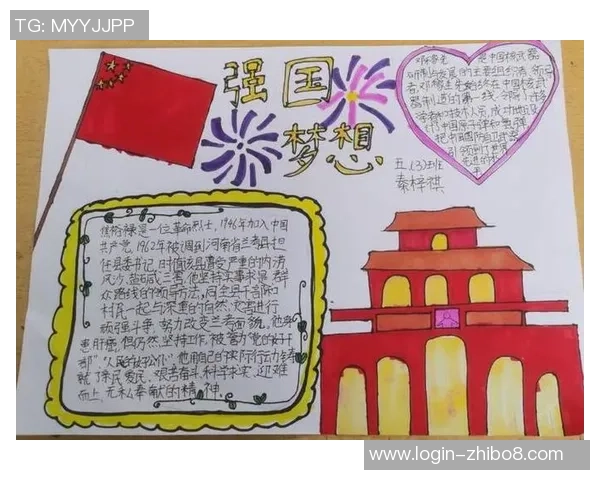 TG: MYYJJPP
强国
梦想
邓稼先 是中国核武器
研制与发展的主要组织者、领导
者,邓稼先始终在中国核武
器制造的第一线,领导了许多
学者和技术人员,成功地设
五、(3)班
秦梓祺
焦裕禄是一位革命烈士,1946年加入中国
共产党,1962年被调到河南省兰考县担
任县委书记,时值该县遭受严重的内涝
风沙,盐碱三害,他坚持实事求是 群
众路线的领导方法,同全县干部和
村民一起与深重的自然灾害进行
顽强斗争,努力改变兰考面貌,他身
患肝癌,但仍然坚持工作,被誉为"党的好干
部""人民的好公仆"他用自己的实际行动铸
就了亲民爱民、艰苦奋斗,科学求实,迎难
而上,无私奉献的精神。
www.login-zhibo8.com